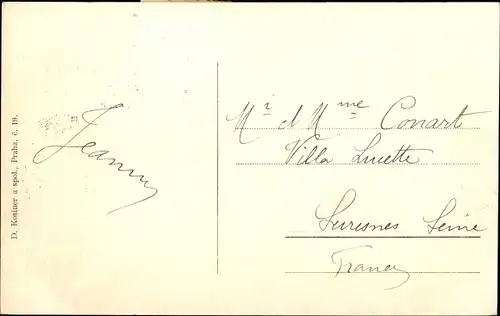 D. Kosiner a spol., Praha, č. 19.
Jeanne
Mr et Mme Conart
Villa Lucette
Suresnes Seine
France